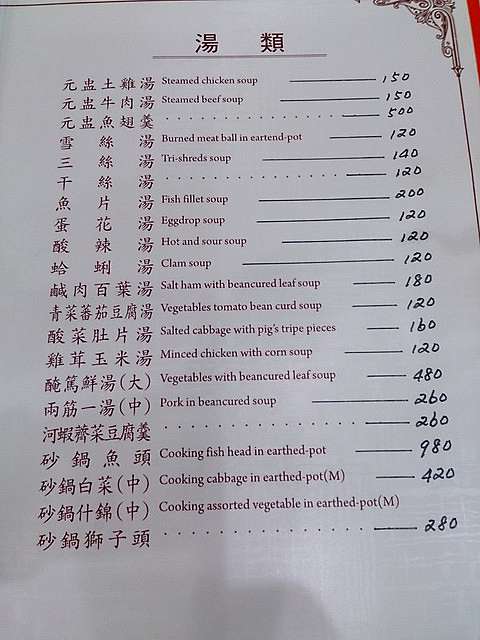 湯 類
元盅土雞湯 Steamed chicken soup 150
元盅牛肉湯 Steamed beef soup 150
元盅魚翅羹 500
雪絲湯 Burned meat ball in eartend-pot 120
三絲湯 Tri-shreds soup 140
干絲湯 120
魚片湯 Fish fillet soup 200
蛋花湯 Eggdrop soup 120
酸辣湯 Hot and sour soup 120
蛤蜊湯 Clam soup 120
鹹肉百葉湯 Salt ham with beancured leaf soup 180
青菜蕃茄豆腐湯 Vegetables tomato bean curd soup 120
酸菜肚片湯 Salted cabbage with pig's tripe pieces 160
雞茸玉米湯 Minced chicken with corn soup 120
醃篤鮮湯(大) Vegetables with beancured leaf soup 480
兩筋一湯(中) Pork in beancured soup 260
河蝦薺菜豆腐羹 260
砂鍋魚頭 Cooking fish head in earthed-pot 980
砂鍋白菜(中) Cooking cabbage in earthed-pot(M) 420
砂鍋什錦(中) Cooking assorted vegetable in earthed-pot(M)
砂鍋獅子頭 280